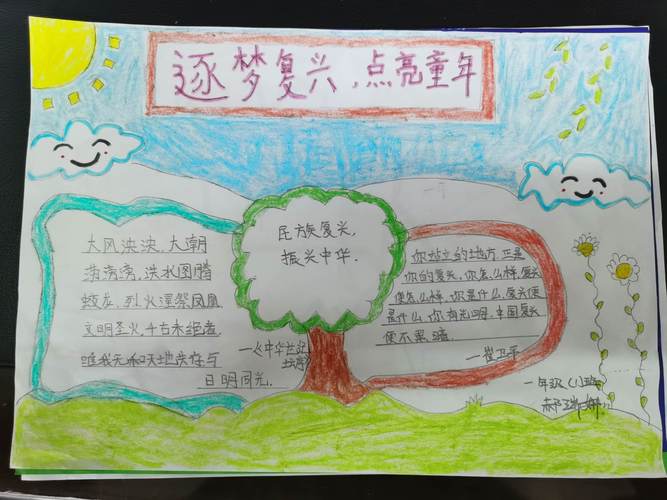 逐梦复兴,点亮童年
大风泱泱,大潮
滂滂,洪水图腾
蛟龙,烈火涅槃凤凰
文明圣火,千古未绝者
唯我无和天地共存与
日明同光.
—《中华世纪
坛序》
民族复兴,
振兴中华.
你站立的地方,正是
你的复兴,你怎么样,复兴
便怎么样,你是什么,复兴便
是什么,你有光明,中国复兴
便不黑暗.
—崔卫平
一年级(1)班